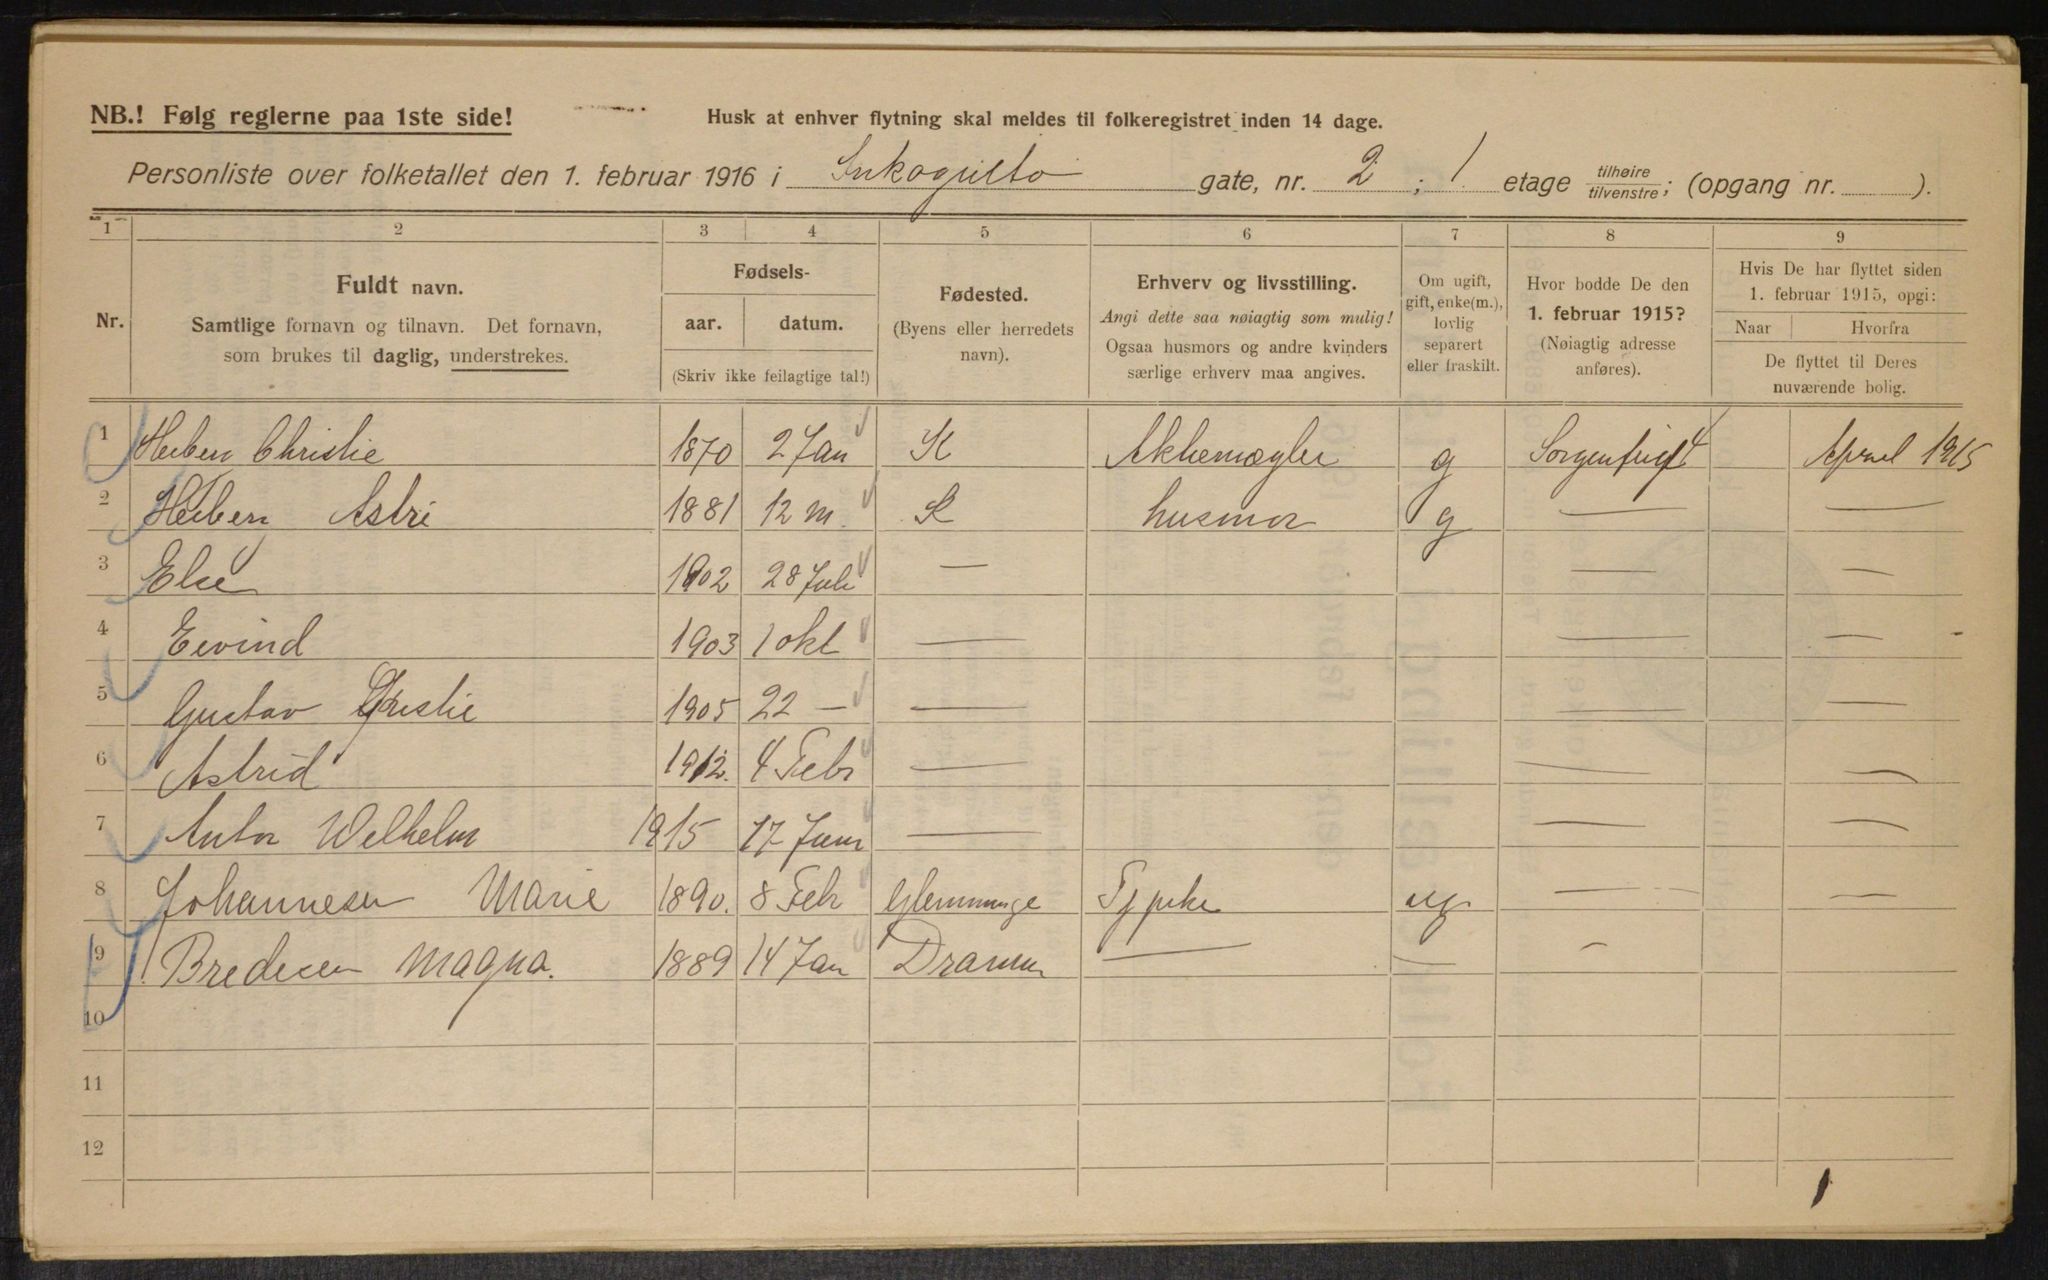 NB.! Følg reglerne paa 1ste side!
Husk at enhver flytning skal meldes til folkeregistret inden 14 dage.
Personliste over folketallet den 1. februar 1916 i Inkognito gate, nr. 2 ; 1. etage tilhøire/tilvenstre; (opgang nr. ).
1 2 3 4 5 6 7 8 9
Nr.
Fuldt navn.
Samtlige fornavn og tilnavn. Det fornavn,
som brukes til daglig, understrekes.
Fødsels-
aar. datum.
(Skriv ikke feilagtige tal!)
Fødested.
(Byens eller herredets
navn).
Erhverv og livsstilling.
Angi dette saa nøiagtig som mulig!
Ogsaa husmors og andre kvinders
særlige erhverv maa angives.
Om ugift,
gift, enke(m.),
lovlig
separert
eller fraskilt.
Hvor bodde De den
1. februar 1915?
(Nøiagtig adresse
anføres).
Hvis De har flyttet siden
1. februar 1915, opgi:
Naar Hvorfra
De flyttet til Deres
nuværende bolig.
1 Heiben Christie 1870 2 Jan K Aktiemægler g Sorgenfrigt 4 April 1915
2 Heiben Astri 1881 12 M. K husmor g — —
3 Else 1902 28 Juli — — —
4 Eivind 1903 1 okt — — —
5 Gustav Christie 1905 22 — — — —
6 Astrid 1912. 4 Febr — — —
7 Anton Wilhelm 1915 17 Juni — — —
8 Johannesen Marie 1890. 8 Febr Glemminge Tjpike ug — —
9 Bredesen Magna. 1889 14 Jan Dramm — — —
10
11
12
1